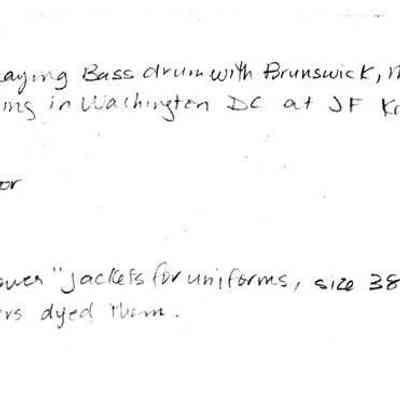 aying Bass drum with Brunswick,
ing in Washington DC at JF
or
ower" jackets for uniforms, size 38
rs dyed them.